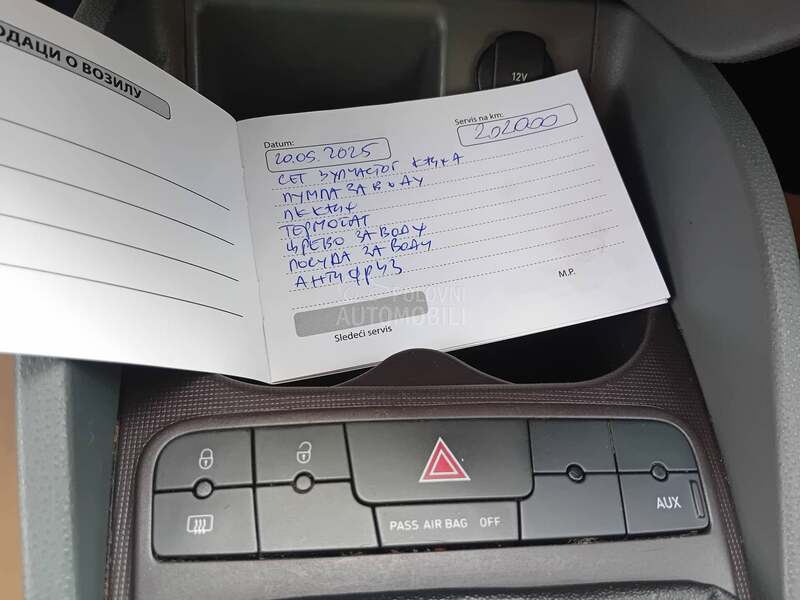 ОДАЦИ О ВОЗИЛУ
12V
Datum:
20.05.2025
Servis na km:
202000
СЕТ ЗУПЧАСТОГ
ПУМПА ЗА ВОДУ
ТЕРМОСТАТ
ЦРЕВО ЗА ВОДУ
ПОСУДА ЗА ВОДУ
АНТИФРИЗ
M.P.
POLOVNI
AUTOMOBILI
Sledeći servis
PASS AIR BAG OFF
AUX